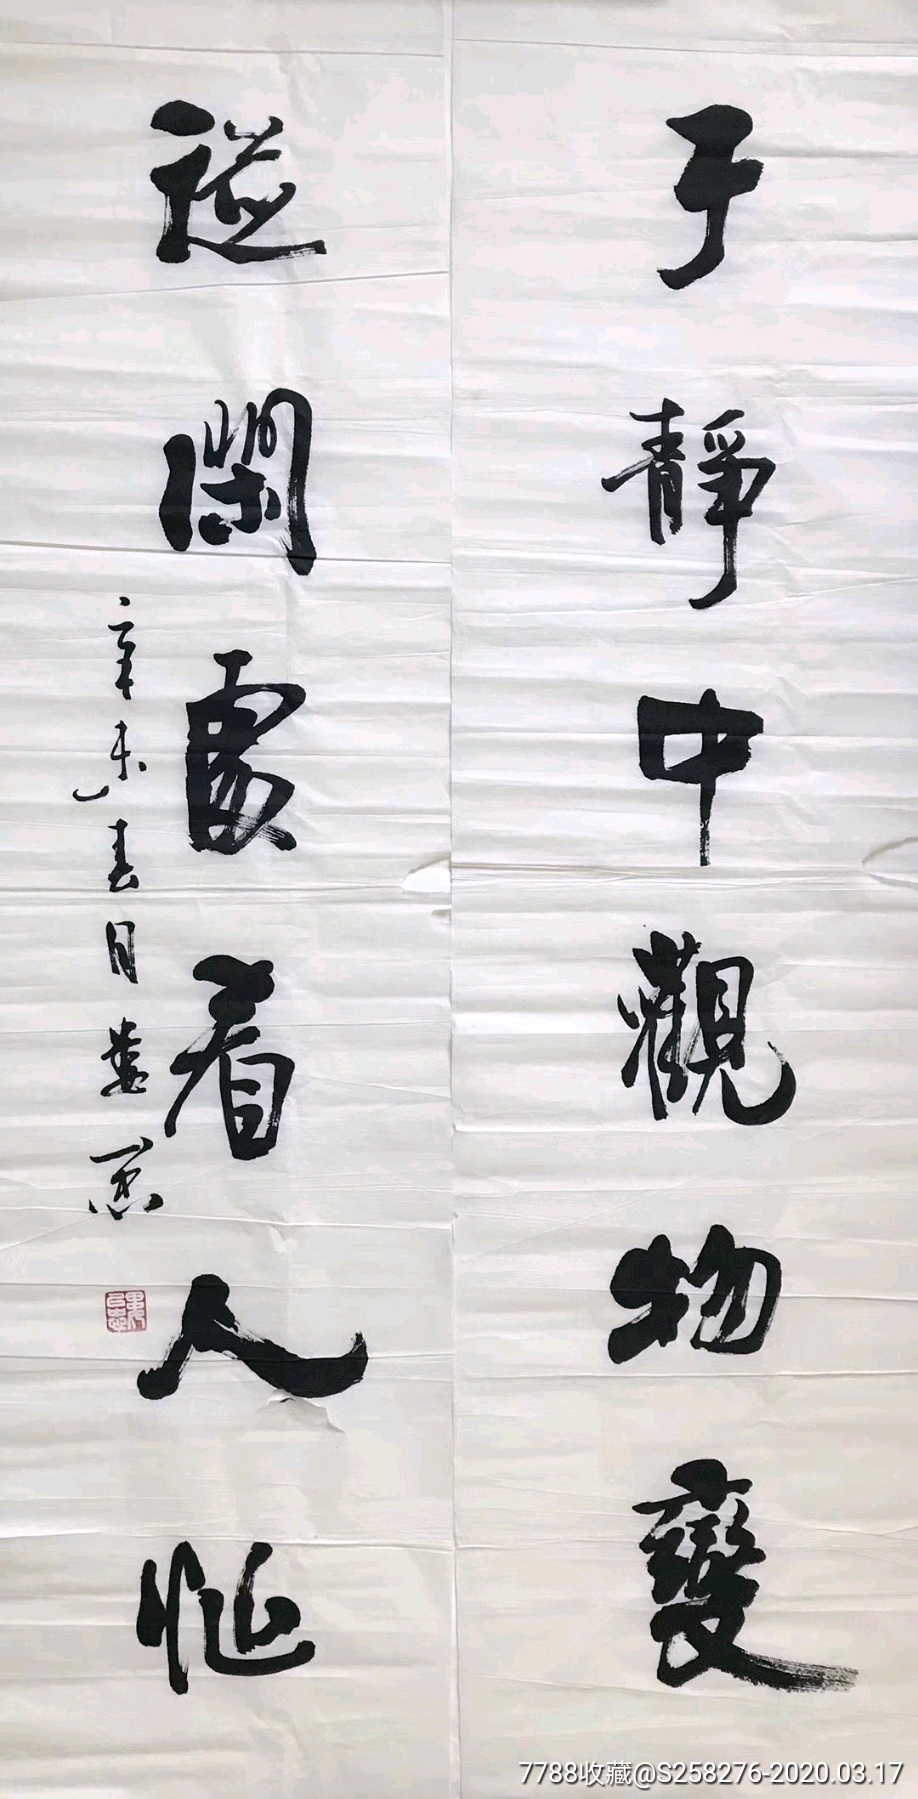 于靜中觀物變
從閑處看人忙
辛未春月
7788收藏@S258276-2020.03.17